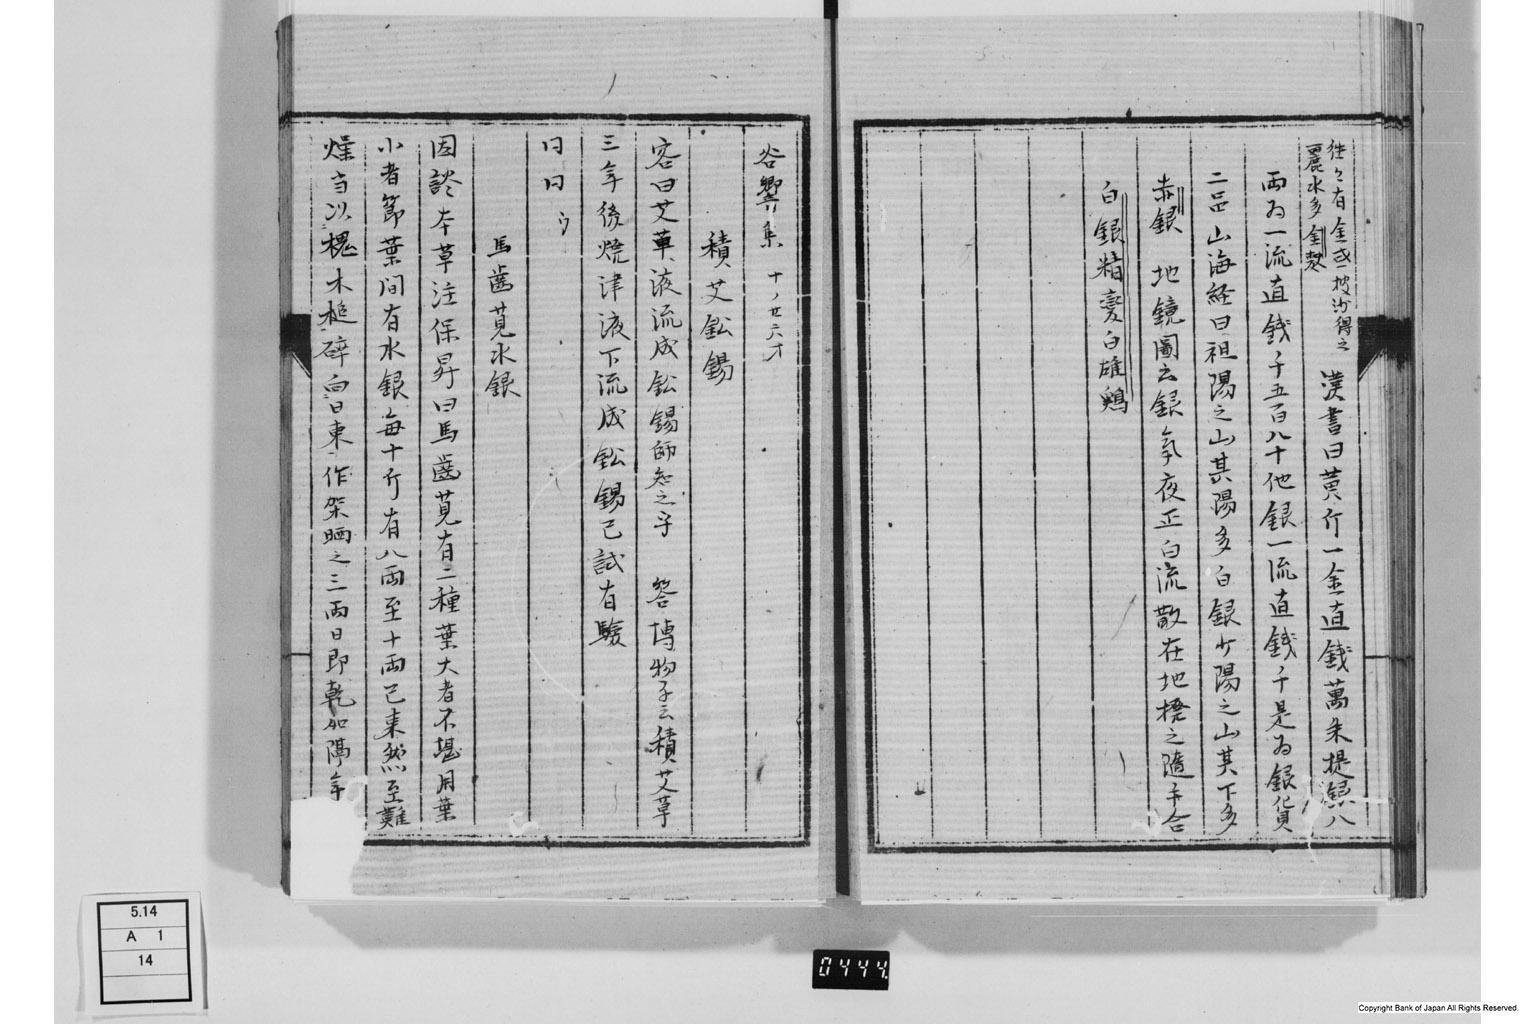 往々有金或披沙得之
麗水多金麩
漢書曰黄斤一金直銭萬朱提銀八
両為一流直銭千五百八十他銀一流直銭千是為銀貨
二品 山海経曰祖陽之山其陽多白銀少陽之山其下多
赤銀 地鏡圖云銀気夜正白流散在地撓之随手合
白銀精變白雄鶏
谷響集 十ノ廿六丁
積艾鈆錫
客曰艾草液流成鈆錫師知之乎 答博物子云積艾草
三年後焼津液下流成鈆錫已試有験
曰曰ゥ
馬歯莧水銀
因談本草注保昇曰馬歯莧有二種葉大者不堪用葉
小者節葉間有水銀毎十斤有八両至十両已来然至難
燥当以槐木槌碎向日東作架晒之三両日即乾如隔年
5.14
A 1
14
0444.
Copyright Bank of Japan All Rights Reserved.